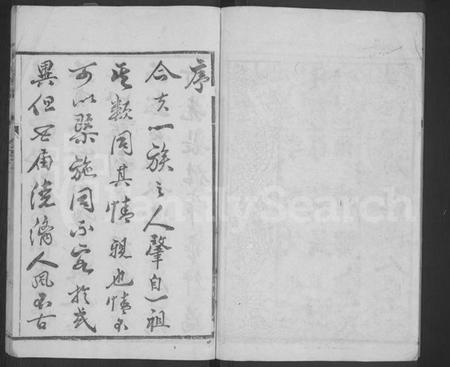 序
今夫一族之人肇自一祖
其類同其情親也情不
可以槩施固不容於或
異但世届澆漓人風不古
FamilySearch